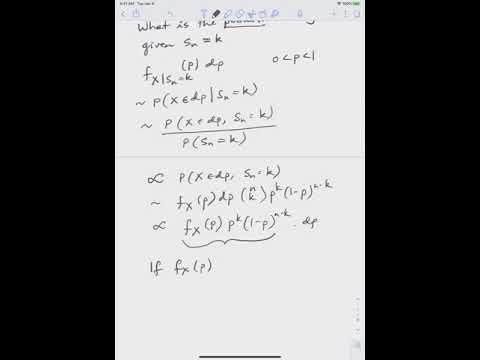 9:41 AM Tue Jan 6
What is the
given Sn = k
f_{X|Sn=k} (p) dp 0<p<1
~ P(X∈dp | Sn=k)
~ P(X∈dp, Sn=k)
P(Sn=k)
∝ P(X∈dp, Sn=k)
~ f_X(p) dp (n k) p^k (1-p)^{n-k}
∝ f_X(p) p^k (1-p)^{n-k} . dp
If f_X(p)